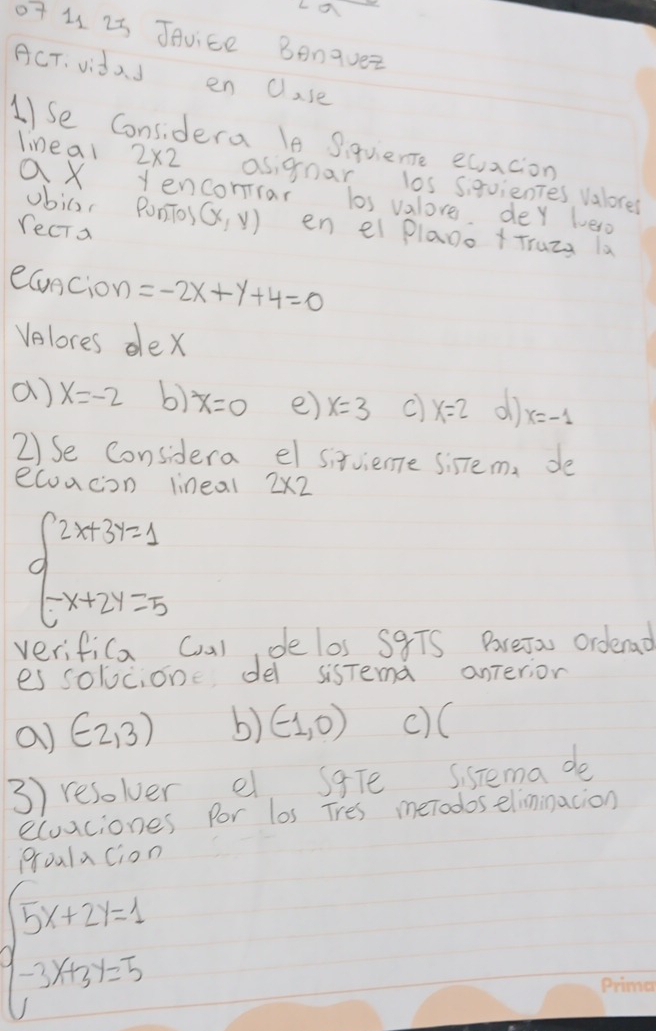 2a
07 11 25 Javier Banquez
Actividad en clase
1.) Se considera la siguiente ecuacion
lineal 2x2 asignar los siguientes valores
a X y encontrar los valore. de y luego
ubicar Puntos (x, y) en el plano y Traza la
recta
ecuacion = -2x+y+4=0
Valores de X
a) X=-2 b) x=0 e) x=3 c) x=2 d) x=-1
2) Se considera el siguiente sistema de
ecuacion lineal 2x2
2x+3y=1
-x+2y=5
verifica cual de los sgts Parejas ordenad
es solucion del sistema anterior
a) (-2,3) b) (-1,0) c) (
3) resolver el sgte sistema de
ecuaciones Por los Tres metodos eliminacion
igualacion
5x+2y=1
-3x+3y=5
Prima